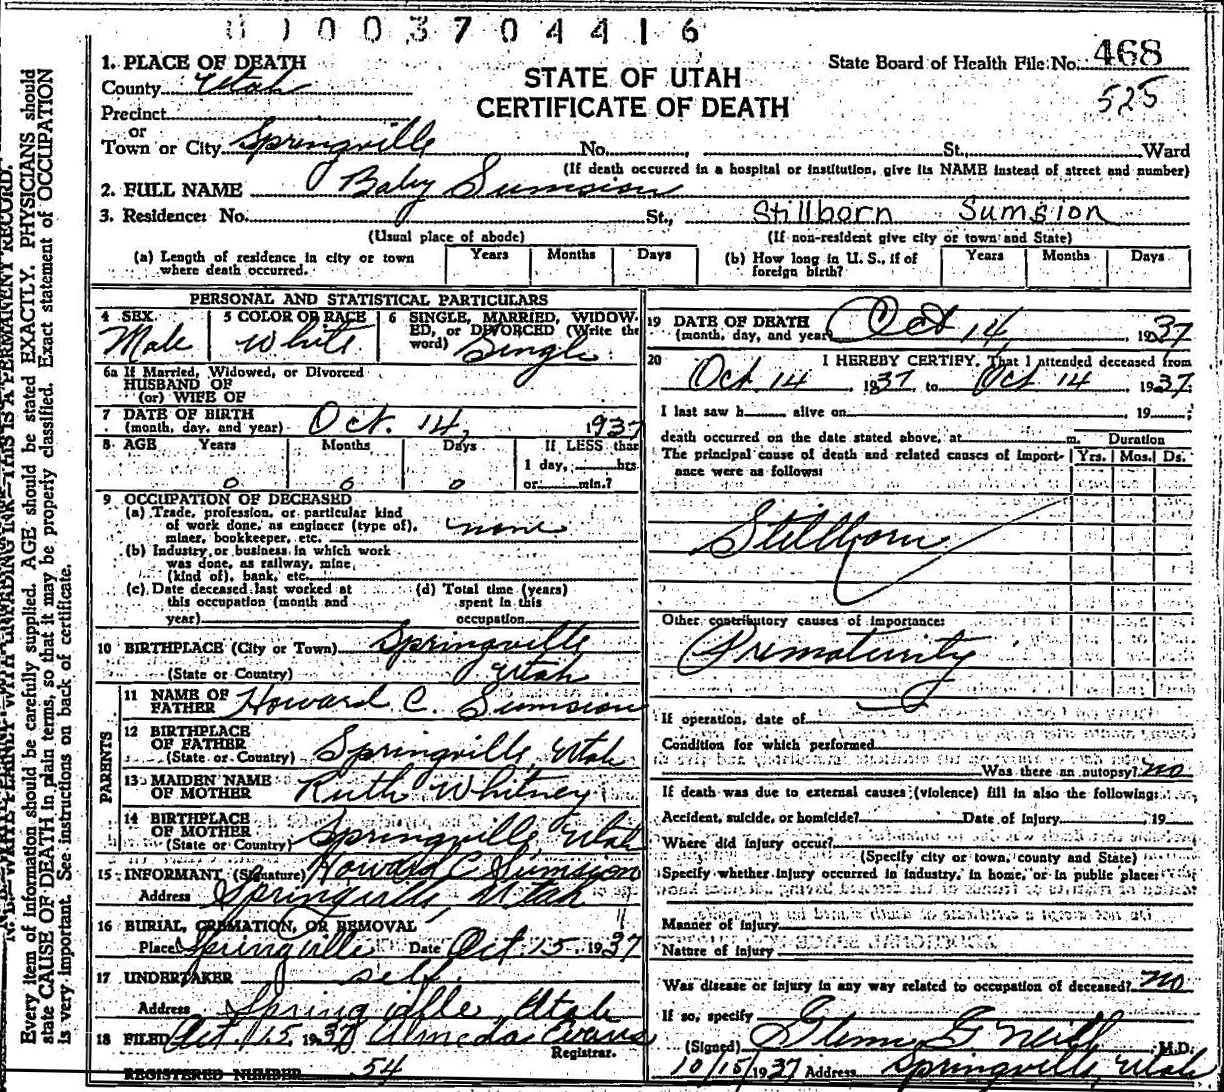 0 1 0 0 3 7 0 4 4 1 6
1. PLACE OF DEATH
County Utah
STATE OF UTAH
CERTIFICATE OF DEATH
State Board of Health File No. 468
525
Precinct
or
Town or City Springville No. St., Ward
(If death occurred in a hospital or institution, give its NAME instead of street and number)
2. FULL NAME Baby Sumsion
3. Residence: No. St., Stillborn Sumsion
(Usual place of abode) (If non-resident give city or town and State)
(a) Length of residence in city or town where death occurred. Years Months Days
(b) How long in U. S., if of foreign birth? Years Months Days
PERSONAL AND STATISTICAL PARTICULARS
4 SEX Male
5 COLOR OR RACE White
6 SINGLE, MARRIED, WIDOWED, or DIVORCED (Write the word) Single
6a If Married, Widowed, or Divorced
HUSBAND OF
(or) WIFE OF
7 DATE OF BIRTH
(month, day, and year) Oct. 14, 1937
8 AGE Years Months Days If LESS than
1 day, hrs
0 0 0 or min.?
9 OCCUPATION OF DECEASED
(a) Trade, profession, or particular kind
of work done, as engineer (type of),
miner, bookkeeper, etc. none
(b) Industry or business in which work
was done, as railway, mine,
(kind of), bank, etc.
(c) Date deceased last worked at
this occupation (month and
year)
(d) Total time (years)
spent in this
occupation
10 BIRTHPLACE (City or Town) Springville
(State or Country) Utah
PARENTS
11 NAME OF FATHER Howard C. Sumsion
12 BIRTHPLACE OF FATHER
(State or Country) Springville, Utah
13 MAIDEN NAME OF MOTHER Ruth Whitney
14 BIRTHPLACE OF MOTHER
(State or Country) Springville, Utah
15 INFORMANT (Signature) Howard C Sumsion
Address Springville, Utah
16 BURIAL, CREMATION, OR REMOVAL
Place Springville Date Oct 15 1937
17 UNDERTAKER self
Address Springville, Utah
18 FILED Oct. 15, 1937 Almeda Evans
Registrar.
REGISTERED NUMBER 54
19 DATE OF DEATH
(month, day, and year) Oct 14, 1937
20 I HEREBY CERTIFY, That I attended deceased from
Oct 14 1937 to Oct 14 1937
I last saw h alive on 19 ;
death occurred on the date stated above, at m. Duration
The principal cause of death and related causes of importance were as follows: Yrs. Mos. Ds.
Stillborn
Other contributory causes of importance:
Prematurity
If operation, date of
Condition for which performed
Was there an autopsy? no
If death was due to external causes (violence) fill in also the following:
Accident, suicide, or homicide? Date of injury 19
Where did injury occur?
(Specify city or town, county and State)
Specify whether injury occurred in industry, in home, or in public place:
Manner of injury
Nature of injury
Was disease or injury in any way related to occupation of deceased? no
If so, specify
(Signed) Glenn G Neill M.D.
10/15/1937 Address Springville, Utah
N. B.—WRITE PLAINLY WITH UNFADING INK—THIS IS A PERMANENT RECORD.
Every item of information should be carefully supplied. AGE should be stated EXACTLY. PHYSICIANS should
state CAUSE OF DEATH in plain terms, so that it may be properly classified. Exact statement of OCCUPATION
is very important. See instructions on back of certificate.